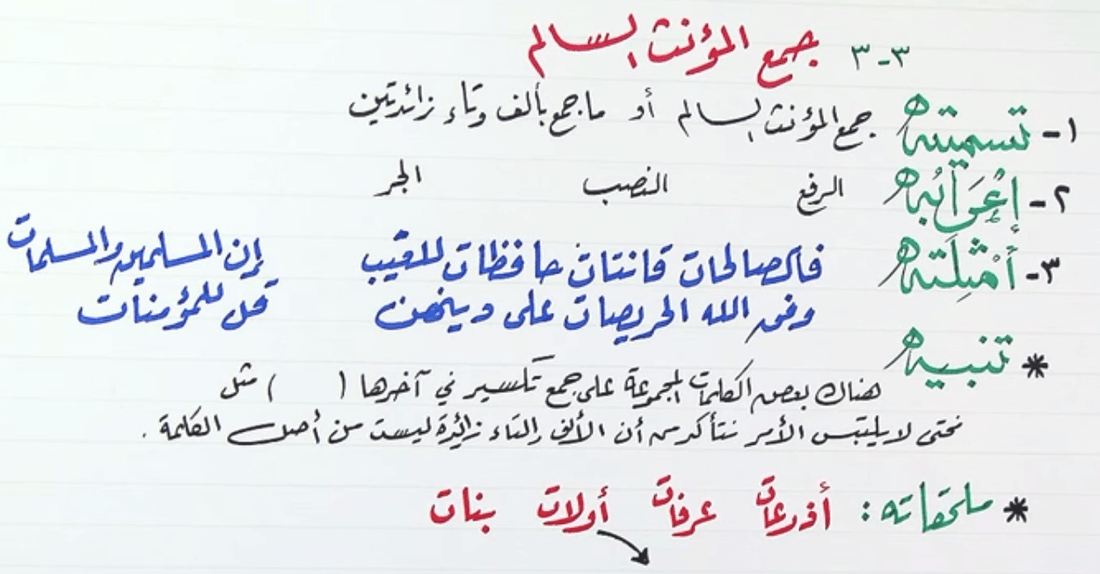 ٣-٣ جمع المؤنث السالم
١- تسميته جمع المؤنث السالم أو ما جمع بألف وتاء زائدتين
٢- إعرابه الرفع النصب الجر
٣- أمثلته فالصالحات قانتات حافظات للغيب إن المسلمين والمسلمات
وفق الله الحريصات على دينهن قل للمؤمنات
* تنبيه
هناك بعض الكلمات المجموعة على جمع تكسير في آخرها ( ) مثل
فحتى لا يلتبس الأمر نتأكد من أن الألف والتاء زائدة ليست من أصل الكلمة .
* ملحقاته : أذرعات عرفات أولات بنات